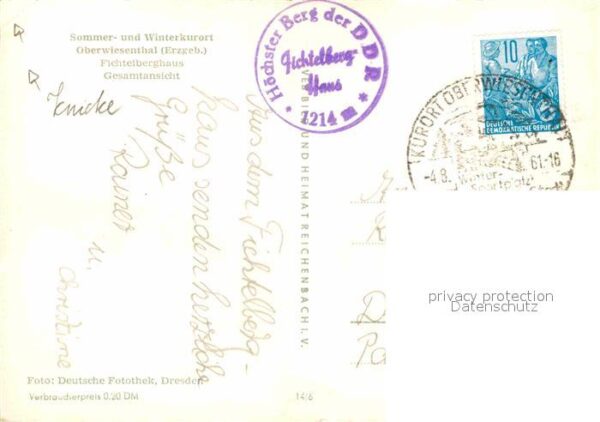 Sommer- und Winterkurort
Oberwiesenthal (Erzgeb.)
Fichtelberghaus
Gesamtansicht
Knicke
Aus dem Fichtelberg-
haus senden herzliche
Grüße
Rainer
u.
Christine
Höchster Berg der DDR
Fichtelberg-
Haus
1214 m
10
DEUTSCHE
DEMOKRATISCHE REPUBLIK
KURORT OBERWIESENTHAL
-4.8. 61-16
Winter-
Sportplatz
VERLAG BILD UND HEIMAT REICHENBACH I. V.
privacy protection
Datenschutz
Foto: Deutsche Fotothek, Dresden
Verbraucherpreis 0.20 DM
14/6